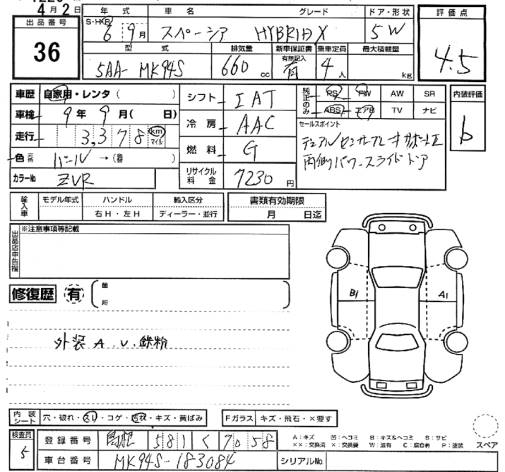 4月2日
年式 車名 グレード ドア・形状
S・H・R
6年 9月 スペーシア HYBRID X 5W
出品番号
36
型式 排気量 新車保証書 乗車定員 最大積載量
有無記入
5AA-MK94S 660 cc 有 4人 kg
評価点
4.5
車歴 自家用・レンタ( )
車検 9年9月( 日)
走行 3,378 km マイル
色 パール→( )
カラーNo ZVR
シフト IAT
冷房 AAC
燃料 G
リサイクル料金 7230円
純正のみ PS PW AW SR
ABS エアB TV ナビ
セールスポイント
デュアルセンサーブレーキサポートⅡ
両側パワースライドドア
内装評価
b
輸入車 モデル年式 ハンドル 輸入区分
右H・左H ディーラー・並行
書類有効期限
月 日迄
※注意事項等記載
修復歴 有
箇所
外装 A.U.鉄粉
B1 A1
内装シート 穴・破れ・・コゲ・・キズ・黄ばみ
Fガラス キズ・飛石・×要す
検査員 5
登録番号 581 く 7058
A:キズ B:キズ&ヘコミ S:サビ
スペア
車台番号 MK94S-183084
シリアルNo